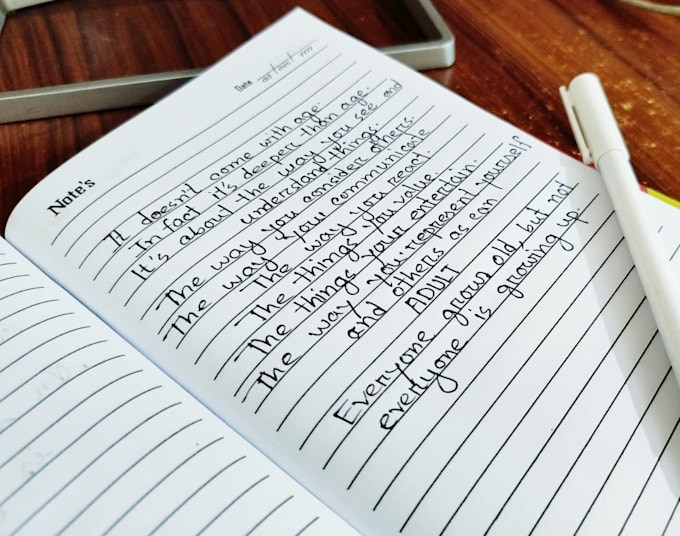 Date dd / mm / yyyy
Note's
It doesn't come with age.
In fact it's deeper than age.
It's about the way you see and
understand things.
The way you consider others.
The way your communicate
The way you react.
The things you value.
The things your entertain.
The way you represent yourself
and others as can
ADULT
Everyone grows old, but not
everyone is growing up.